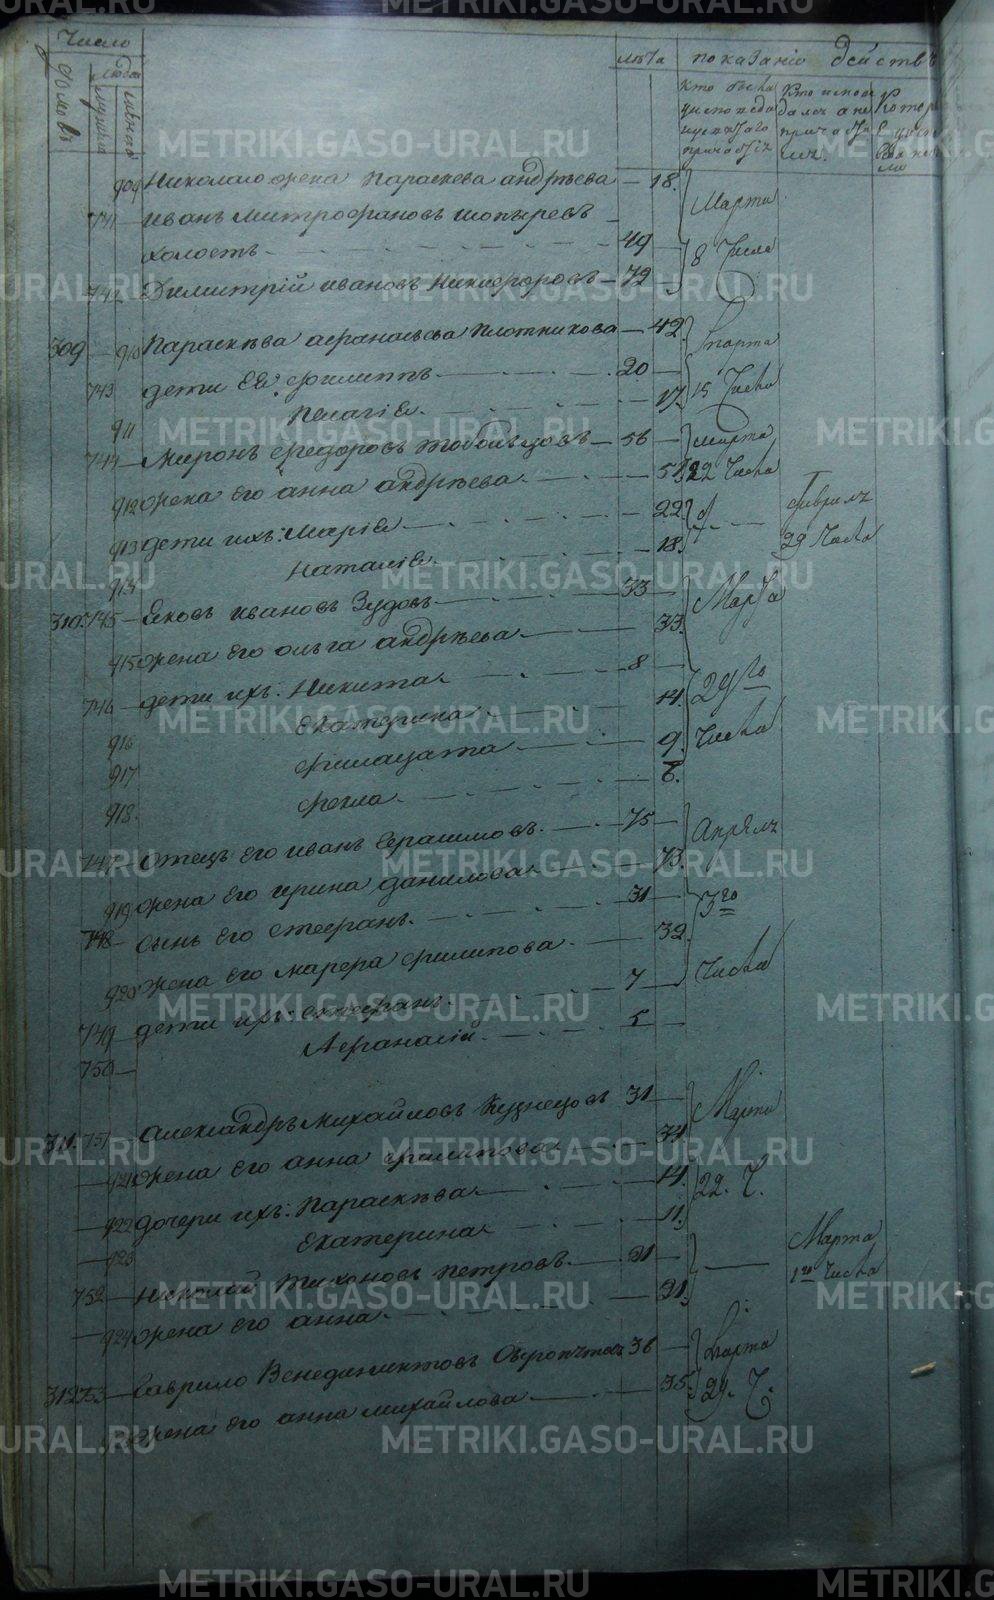 Число лѣта показаніе дѣйствъ
домовъ людей
мужеска женска
Кто были у исповеди и святаго причастія
Кто исповѣдался а не причастился
Которые у исповеди не были
909 Николаю жена Параскева андрѣева — 18. Марта
741 — иванъ митрофановъ шопыревъ
холостъ — 49 — 8 Числа
742 Димитрій ивановъ Никифоровъ — 72
309 — 910 Параскѣва афанасьева Плотникова — 42. Марта
743 дети Ея: филиппъ — 20 — 15 Числа
911 Пелагія — 17.
744 — Миронъ федоровъ — 56 — марта
912 жена его анна андрѣева — 51. 22 Числа
913 дети ихъ: Марія — 22 февраля
914 Наталія — 18. 29 Числа
310. 745 — Яковъ ивановъ Зудовъ — 33 — Марта
915 жена его ольга андрѣева — 33.
746 дети ихъ: Никита — 8 — 29го
916 Екатерина — 14. Числа
917 филицата — 9.
918. фекла — 6.
747 — Отецъ его иванъ Герасимовъ — 75 — Апреля
919 жена его ирина данилова — 73. 3го
748 — сынъ его стефанъ — 31
920 жена его марфа филипова — 32. Числа
749 дети ихъ: стефанъ — 7
750 — Афанасій — 5
311. 751 Александръ михайловъ Кузнецовъ 31 — Марта
— 921 жена его анна филипова — 31
— 922 дочери ихъ: Параскѣва — 14. 22. Ч.
— 923 Екатерина — 11.
752 — Николай Тихоновъ Петровъ — 21 — Марта
— 924 жена его анна — 21. 1го Числа
312. 753 — Гаврило Венедиктовъ — 36 — Марта
жена его анна михайлова — 35. 29. Ч.
METRIKI.GASO-URAL.RU